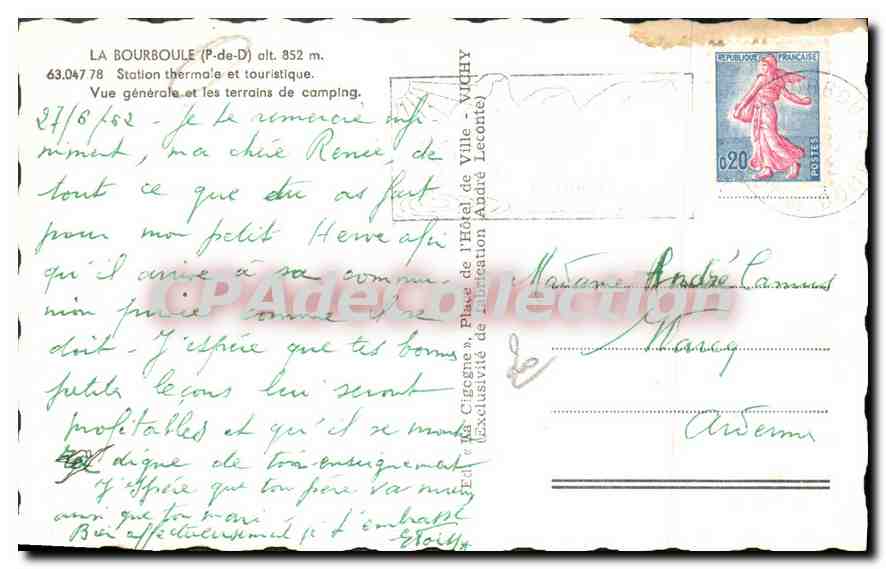 LA BOURBOULE (P-de-D) alt. 852 m.
63.047 78 Station thermale et touristique.
Vue générale et les terrains de camping.
27/6/62 - Je te remercie infi-
niment, ma chère Renée, de
tout ce que tu as fait
pour mon petit Hervé afin
qu'il arrive à sa commu-
nion privée comme il se
doit - J'espère que tes bonnes
petites leçons lui seront
profitables et qu'il se montre
digne de ton enseignement
J'espère que ton père va mieux
ainsi que ton mari je t'embrasse
Bien affectueusement
Ed. « La Cigogne », Place de l'Hôtel de Ville - VICHY
(Exclusivité de fabrication André Leconte)
REPUBLIQUE FRANÇAISE
0,20
POSTES
Madame André Camus
Marcq
Ardennes
20
CPAdeCollection